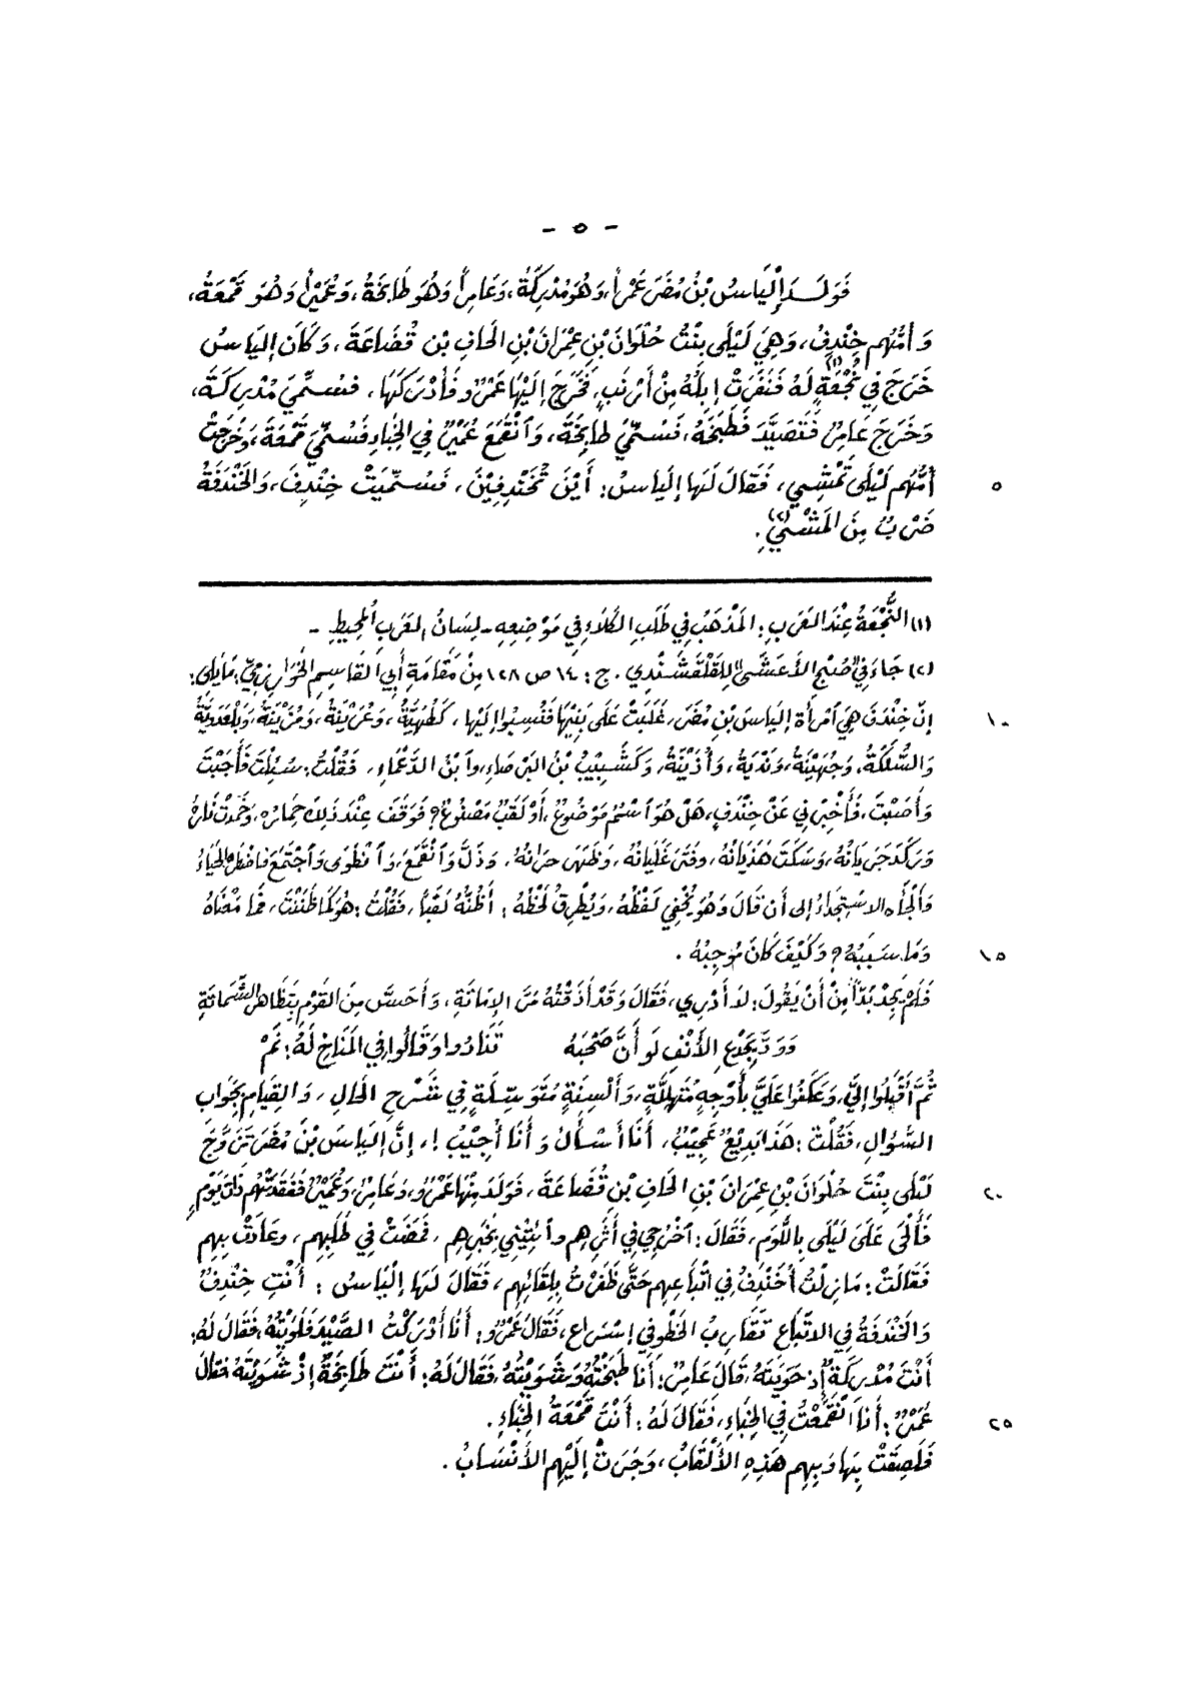 - ٥ -
فَوَلَدَ إِلْيَاسُ بْنُ مُضَرَ عَمْراً، وَهُوَ مُدْرِكَةُ، وَعَامِراً وَهُوَ طَابِخَةُ، وَعُمَيْراً وَهُوَ قَمْعَةُ،
وَأُمُّهُم خِنْدِفُ، وَهِيَ لَيْلَى بِنْتُ حُلْوَانَ بْنِ عِمْرَانَ بْنِ الحَافِ بْنِ قُضَاعَةَ، وَكَانَ إليَاسُ
خَرَجَ فِي نُجْعَةٍ (١) لَهُ فَنَفَرَتْ إِبِلُهُ مِنْ أَرْنَبٍ، فَخَرَجَ إِلَيْهَا عَمْرٌو فَأَدْرَكَهَا، فَسُمِّيَ مُدْرِكَةَ،
وَخَرَجَ عَامِرٌ فَتَصَيَّدَ فَطَبَخَهُ، فَسُمِّيَ طَابِخَةَ، وَٱنْقَمَعَ عُمَيْرٌ فِي الخِبَاءِ فَسُمِّيَ قَمَعَةَ، وَخَرَجَتْ
أُمُّهُم لَيْلَى تَمْشِي، فَقَالَ لَهَا إليَاسُ: أَيْنَ تُخَنْدِفِيْنَ، فَسُمِّيَتْ خِنْدِفَ، وَالخَنْدَفَةُ
٥
ضَرْبٌ مِنَ المَشْيِ (٢).
(١) النُّجْعَةُ عِنْدَ العَرَبِ: المَذْهَبُ فِي طَلَبِ الكَلَاءِ فِي مَوْضِعِهِ - لِسَانُ العَرَبِ المُحِيطِ -
(٢) جَاءَ فِي "صُبْحِ الأَعْشَى" لِلقَلْقَشَنْدِي. ج: ١٤ ص ١٢٨ مِنْ مَقَامَةِ أَبِي القَاسِمِ الخَوَارِزمِيِّ: مَا يَلِي:
إنَّ خِنْدَفَ هِيَ آمْرَأَة إليَاسَ بْنِ مُضَرَ، غَلَبَتْ عَلَى بَنِيْهَا فَنُسِبُوا إِلَيْهَا، كَطُهَيَّةَ، وَعُرَيْنَةَ، وَمُزَيْنَةَ، وَبَلْعَدَوِيَّةَ
١٠
وَالسُّلَكَةُ، وَجُهَيْنَةُ، وَنَدْبَةَ، وَأُذَيْنَةَ، وَكَشَبِيْبِ بْنِ البَرْصَاءِ، وآبْنِ الدَّعْمَاءِ، فَقُلْتُ: سُئِلْتَ فَأَجَبْتَ
وَأَصَبْتَ، فَأَخْبِرْنِي عَنْ خِنْدَفٍ، هَلْ هُوَ آسْمٌ مَوْضُوعٌ، أَوْ لَقَبٌ مَصْنُوعٌ؟ فَوَقَفَ عِنْدَ ذَلِكَ حِمَارُهُ، وَخَمَدْت نَارُهُ
وَرَكَدَ جَرَيَانُهُ، وَسَكَتَ هَذَيَانُهُ، وَفَتَرَ غَلَيَانُهُ، وَظَهَرَ حِرَانُهُ، وَذَلَّ وَٱنْقَمَعَ، وَٱنْطَوَى وَٱجْتَمَعَ فاضطَرَّهُ الحَيَاءُ
وَأَلجَأَه الاسْتِجَدَاءُ إلى أَن قَالَ وَهُوَ يُخْفِي لَفْظَهُ، وَيُطْرِقُ لَحْظَهُ: أَظُنُّهُ لَقَبًا، فَقُلْتُ: هُوَ كَمَا ظَنَنْتَ، فَمَا مَعْنَاهُ
وَمَا سَبَبُهُ؟ وَكَيْفَ كَانَ مُوجِبُهُ.
١٥
فَلَمْ يَجِدْ بَدًّا مِنْ أَنْ يَقُولَ: لاَ أَدْرِي، فَقَالَ وَقَدْ أَذَقْتُهُ مُرَّ الإِمَاتَةِ، وَأَحَسَّ مِنَ القَوْمِ بِتَظَاهُرِ الشَّمَاتَةِ
وَوَدَّ بِجَدْعِ الأَنْفِ لَو أَنَّ صَحْبَهُ تَنَادُوا وَقَالُوا فِي المَنَاخِ لَهُ: نَمْ
ثُمَّ أَقْبَلُوا إِلَيَّ، وَعَكَفُوا عَلَيَّ بِأَوْجِهٍ مُتَهَلِّلَةٍ، وَأَلْسِنَةٍ مُتَوَسِّلَةٍ فِي شَرْحِ الحَالِ، وَالقِيَامِ بِجَوَابِ
السُّؤَالِ، فَقُلْتُ: هَذَا بَدِيْعٌ عَجِيْبٌ، أَنَا أَسْأَلُ وَأَنَا أُجِيْبُ !، إِنَّ إليَاسَ بْنَ مُضَرَ تَزَوَّجَ
لَيْلَى بِنْتَ حُلْوَانَ بْنِ عِمْرَانَ بْنِ الحَافِ بْنِ قُضَاعَةَ، فَوَلَدَ مِنْهَا عَمْرٌو، وَعَامِرٌ، وَعُمَيْرٌ فَفَقَدَتْهُم ذَاتَ يَوْمٍ
٢٠
فَأَلْحَى عَلَى لَيْلَى بِاللَّوْمِ، فَقَالَ: آخْرُجِي فِي أَثَرِهِم وآئْتِيْنِي بِخَبَرِهِم، فَمَضَتْ فِي طُلَبِهِم، وَعَادَتْ بِهِم
فَقَالَتْ: مَا زِلْتُ أُخَنْدِفُ فِي اتْبَاعِهِم حَتَّى ظَفَرْتُ بِلِقَائِهِم، فَقَالَ لَهَا إِلْيَاسُ: أَنْتِ خِنْدِفُ
وَالخَنْدَفَةُ فِي الاتِّبَاعِ تَقَارِبُ الخَطْوِ فِي إِسْرَاعٍ، فَقَالَ عَمْرٌو: أَنَا أَدْرَكْتُ الصَّيْدَ فَلَوَيْتُهُ، فَقَالَ لَهُ:
أَنْتَ مُدْرِكَةُ إِذْ حَوَيْتَهُ، قَالَ عَامِرٌ: أَنَا طَبَخْتُهُ وَشَوَيْتُهُ، فَقَالَ لَهُ: أَنْتَ طَابِخَةُ إِذْ شَوَيْتَهُ، فَقَالَ
عُمَيْرٌ: أَنَا آنْقَمَعْتُ فِي الخِبَاءِ، فَقَالَ لَهُ: أَنْتَ قَمَعَةُ الخِبَاءِ.
٢٥
فَلَصِقَتْ بِهَا وَبِهِم هَذِهِ الأَلْقَابُ، وَجَرَتْ إِلَيْهِمِ الأَنْسَابُ.